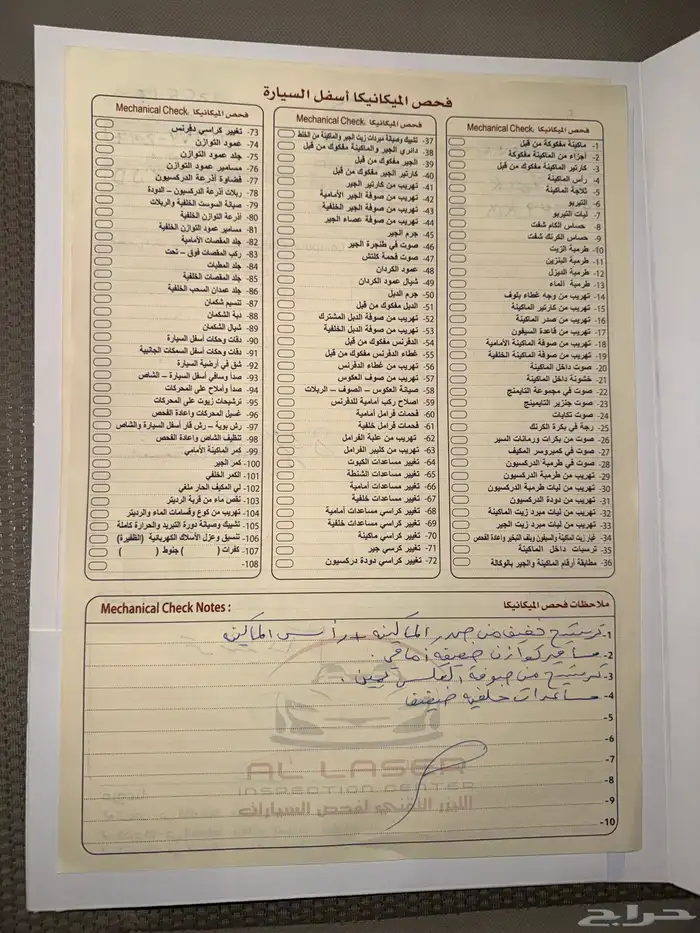 فحص الميكانيكا أسفل السيارة
فحص الميكانيكا Mechanical Check.
1- ماكينة مفكوكة من قبل
2- أجزاء من الماكينة مفكوكة
3- كارتير الماكينة مفكوك من قبل
4- رأس الماكينة
5- ثلاجة الماكينة
6- التيربو
7- ليات التيربو
8- حساس الكام شفت
9- حساس الكرنك شفت
10- طرمبة الزيت
11- طرمبة البنزين
12- طرمبة الديزل
13- طرمبة الماء
14- تهريب من وجه غطاء بلوف
15- تهريب من كارتير الماكينة
16- تهريب من صدر الماكينة
17- تهريب من قاعدة السيفون
18- تهريب من صوفة الماكينة الأمامية
19- تهريب من صوفة الماكينة الخلفية
20- صوت داخل الماكينة
21- خشونة داخل الماكينة
22- صوت في مجموعة التايمنج
23- صوت جنزير التايمينج
24- صوت تكايات
25- رجة في بكرة الكرنك
26- صوت من بكرات ورمانات السير
27- صوت في كمبروسر المكيف
28- صوت في طرمبة الدركسيون
29- تهريب من طرمبة الدركسيون
30- تهريب من ليات طرمبة الدركسيون
31- تهريب من دودة الدركسيون
32- تهريب من ليات مبرد زيت الماكينة
33- تهريب من ليات مبرد زيت الجير
34- غيار زيت الماكينة والسيفون وبلف التبخير واعادة الفحص
35- ترسبات داخل الماكينة
36- مطابقة أرقام الماكينة والجير بالوكالة
فحص الميكانيكا Mechanical Check.
37- تشييك وصيانة مبردات زيت الجير والماكينة من الخلط
38- دائري الجير والماكينة مفكوك من قبل
39- الجير مفكوك من قبل
40- كارتير الجير مفكوك من قبل
41- تهريب من كارتير الجير
42- تهريب من صوفة الجير الأمامية
43- تهريب من صوفة الجير الخلفية
44- تهريب من صوفة عصاء الجير
45- جرم الجير
46- صوت في طنجرة الجير
47- صوت فحمة كلتش
48- عمود الكردان
49- شيال عمود الكردان
50- جرم الدبل
51- الدبل مفكوك من قبل
52- تهريب من صوفة الدبل المشترك
53- تهريب من صوفة الدبل الخلفية
54- الدفرنس مفكوك من قبل
55- غطاء الدفرنس مفكوك من قبل
56- تهريب من غطاء الدفرنس
57- تهريب من صوف العكوس
58- صيانة العكوس – الصوف – الربلات
59- اصلاح ركب امامية للدفرنس
60- فحمات فرامل أمامية
61- فحمات فرامل خلفية
62- تهريب من علبة الفرامل
63- تهريب من كليبر الفرامل
64- تغيير مساعدات الكبوت
65- تغيير مساعدات الشنطة
66- تغيير مساعدات أمامية
67- تغيير مساعدات خلفية
68- تغيير كراسي مساعدات أمامية
69- تغيير كراسي مساعدات خلفية
70- تغيير كراسي ماكينة
71- تغيير كرسي جير
72- تغيير كراسي دودة دركسيون
فحص الميكانيكا Mechanical Check.
73- تغيير كراسي دفرنس
74- عمود التوازن
75- جلد عمود التوازن
76- مسامير عمود التوازن
77- قضاوة أذرعة الدركسيون
78- ربلات أذرعة الدركسيون – الدودة
79- صيانة السوست الخلفية والربلات
80- أذرعة التوازن الخلفية
81- مسامير عمود التوازن الخلفية
82- جلد المقصات الأمامية
83- ركب المقصات فوق – تحت
84- جلد المطبات
85- جلد المقصات الخلفية
86- جلد عمدان السحب الخلفية
87- تنسيم شكمان
88- دبة الشكمان
89- شيال الشكمان
90- دقات وحكات أسفل السيارة
91- دقات وحكات أسفل السمكات الجانبية
92- شق في أرضية السيارة
93- صدأ وسافي أسفل السيارة – الشاص
94- صدأ وأملاح على المحركات
95- ترشيحات زيوت على المحركات
96- غسيل المحركات واعادة الفحص
97- رش بوية – رش قار أسفل السيارة والشاص
98- تنظيف الشاص واعادة الفحص
99- كمر الماكينة الأمامي
100- كمر الجير
101- الكمر الخلفي
102- لي المكيف الحار ملغي
103- نقص ماء من قربة الرديتر
104- تهريب من كوع وقسامات الماء والرديتر
105- تشييك وصيانة دورة التبريد والحرارة كاملة
106- تنسيق وعزل الأسلاك الكهربائية (الظفيرة)
107- كفرات ( ) جنوط ( )
108-
Mechanical Check Notes : ملاحظات فحص الميكانيكا
1- ترشيح خفيف من صدر الماكينه + رأس الماكينه
2- مسامير توازن ضعيفه أمامي .
3- ترشيح من صوفة العكس يمين .
4- مساعدات خلفيه ضعيفه
5-
6-
7-
8-
9-
10-
AL LASER
INSPECTION CENTER
الليزر التقني لفحص السيارات
حراج